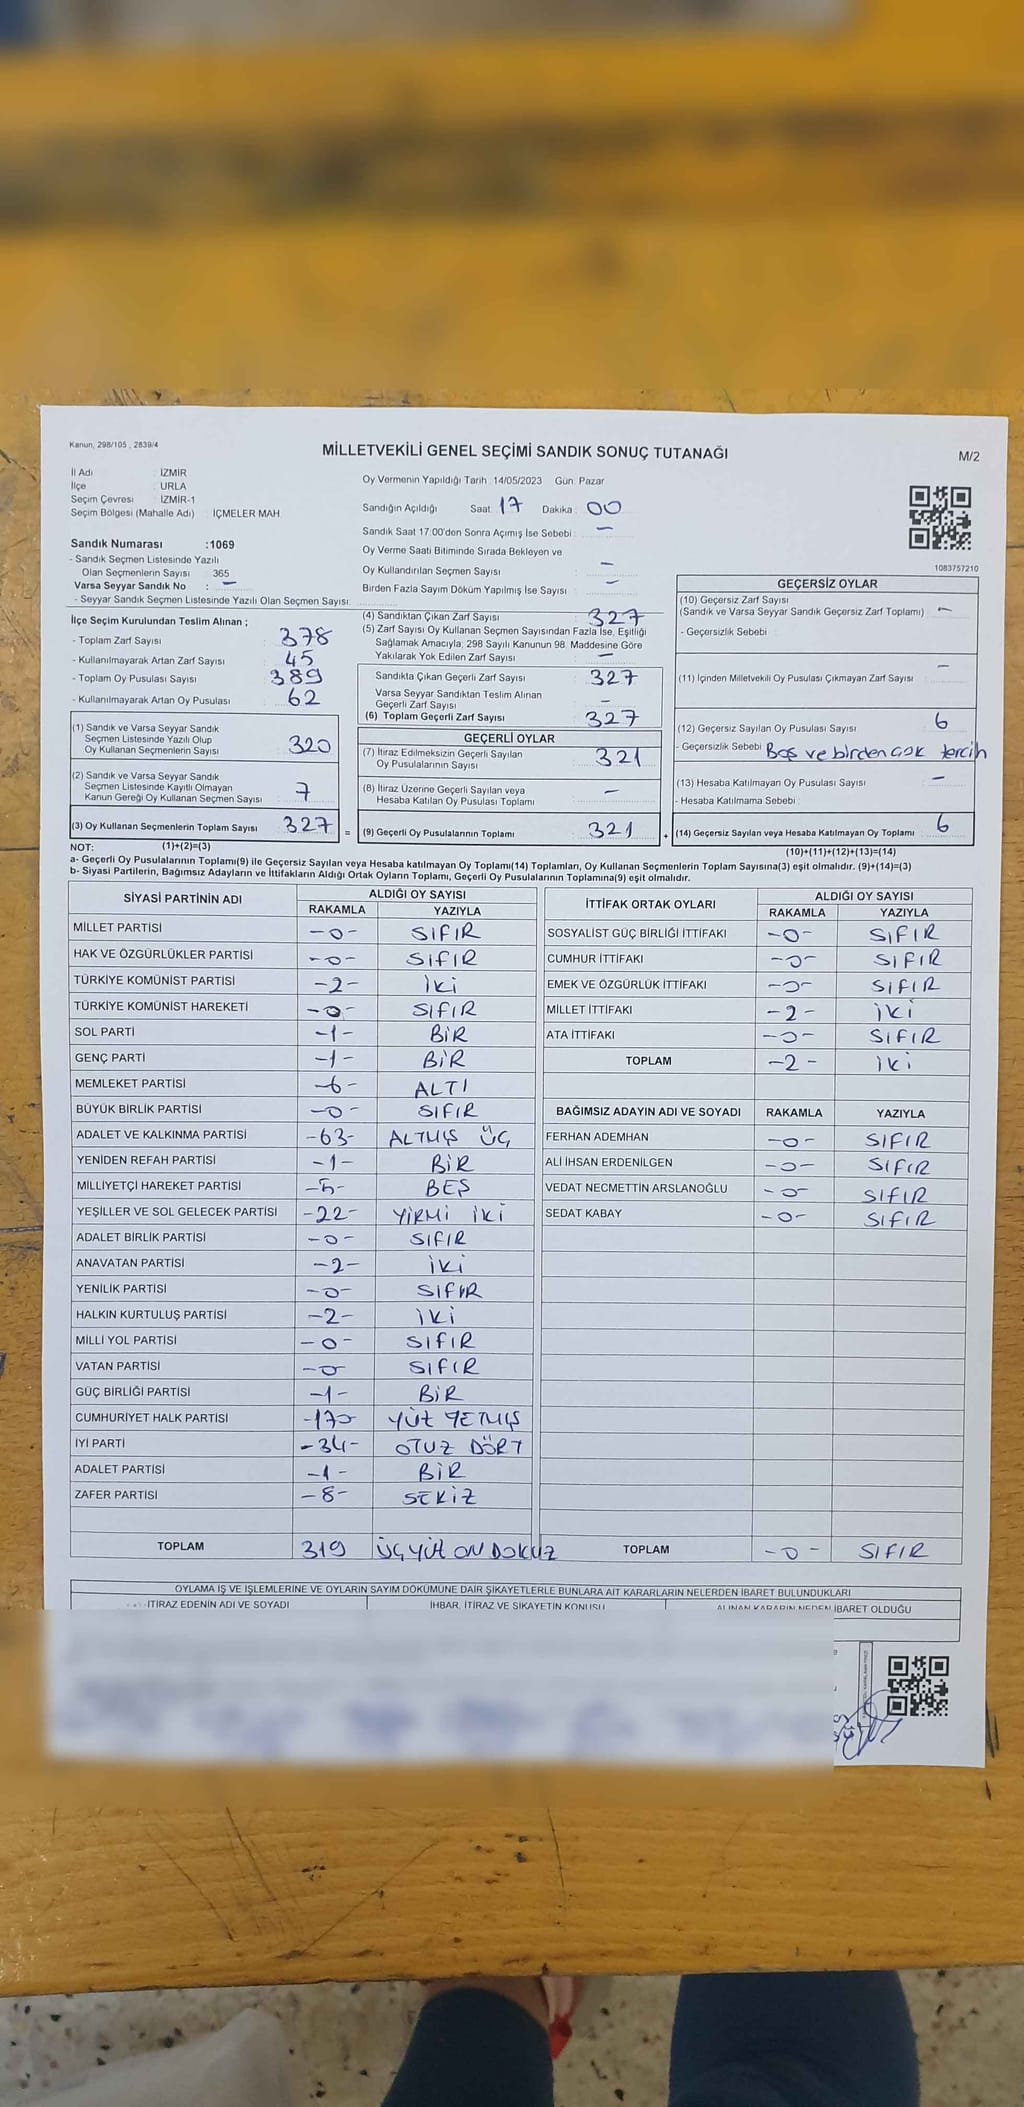 Kanun, 298/105 , 2839/4
MİLLETVEKİLİ GENEL SEÇİMİ SANDIK SONUÇ TUTANAĞI
M/2
İl Adı : İZMİR
İlçe : URLA
Seçim Çevresi : İZMİR-1
Seçim Bölgesi (Mahalle Adı) : İÇMELER MAH.
Sandık Numarası :1069
- Sandık Seçmen Listesinde Yazılı
Olan Seçmenlerin Sayısı : 365
Varsa Seyyar Sandık No : -
- Seyyar Sandık Seçmen Listesinde Yazılı Olan Seçmen Sayısı:
Oy Vermenin Yapıldığı Tarih : 14/05/2023 Gün : Pazar
Sandığın Açıldığı Saat : 17 Dakika : 00
Sandık Saat 17:00'den Sonra Açımış İse Sebebi : -
Oy Verme Saati Bitiminde Sırada Bekleyen ve
Oy Kullandırılan Seçmen Sayısı : -
Birden Fazla Sayım Döküm Yapılmış İse Sayısı : -
1083757210
İlçe Seçim Kurulundan Teslim Alınan ;
- Toplam Zarf Sayısı : 378
- Kullanılmayarak Artan Zarf Sayısı : 45
- Toplam Oy Pusulası Sayısı : 389
- Kullanılmayarak Artan Oy Pusulası : 62
(1) Sandık ve Varsa Seyyar Sandık
Seçmen Listesinde Yazılı Olup
Oy Kullanan Seçmenlerin Sayısı : 320
(2) Sandık ve Varsa Seyyar Sandık
Seçmen Listesinde Kayıtlı Olmayan
Kanun Gereği Oy Kullanan Seçmen Sayısı : 7
(3) Oy Kullanan Seçmenlerin Toplam Sayısı : 327 =
(1)+(2)=(3)
(4) Sandıktan Çıkan Zarf Sayısı : 327
(5) Zarf Sayısı Oy Kullanan Seçmen Sayısından Fazla İse, Eşitliği
Sağlamak Amacıyla; 298 Sayılı Kanunun 98. Maddesine Göre
Yakılarak Yok Edilen Zarf Sayısı : -
Sandıkta Çıkan Geçerli Zarf Sayısı : 327
Varsa Seyyar Sandıktan Teslim Alınan
Geçerli Zarf Sayısı : -
(6) Toplam Geçerli Zarf Sayısı : 327
GEÇERLİ OYLAR
(7) İtiraz Edilmeksizin Geçerli Sayılan
Oy Pusulalarının Sayısı : 321
(8) İtiraz Üzerine Geçerli Sayılan veya
Hesaba Katılan Oy Pusulası Toplamı : -
(9) Geçerli Oy Pusulalarının Toplamı : 321 +
GEÇERSİZ OYLAR
(10) Geçersiz Zarf Sayısı
(Sandık ve Varsa Seyyar Sandık Geçersiz Zarf Toplamı) : -
- Geçersizlik Sebebi :
(11) İçinden Milletvekili Oy Pusulası Çıkmayan Zarf Sayısı : -
(12) Geçersiz Sayılan Oy Pusulası Sayısı : 6
- Geçersizlik Sebebi : Boş ve birden çok tercih
(13) Hesaba Katılmayan Oy Pusulası Sayısı : -
- Hesaba Katılmama Sebebi :
(14) Geçersiz Sayılan veya Hesaba Katılmayan Oy Toplamı : 6
(10)+(11)+(12)+(13)=(14)
NOT:
a- Geçerli Oy Pusulalarının Toplamı(9) ile Geçersiz Sayılan veya Hesaba katılmayan Oy Toplamı(14) Toplamları, Oy Kullanan Seçmenlerin Toplam Sayısına(3) eşit olmalıdır. (9)+(14)=(3)
b- Siyasi Partilerin, Bağımsız Adayların ve İttifakların Aldığı Ortak Oyların Toplamı, Geçerli Oy Pusulalarının Toplamına(9) eşit olmalıdır.
SİYASİ PARTİNİN ADI ALDIĞI OY SAYISI
RAKAMLA YAZIYLA
MİLLET PARTİSİ -0- SIFIR
HAK VE ÖZGÜRLÜKLER PARTİSİ -0- SIFIR
TÜRKİYE KOMÜNİST PARTİSİ -2- İKİ
TÜRKİYE KOMÜNİST HAREKETİ -0- SIFIR
SOL PARTİ -1- BİR
GENÇ PARTİ -1- BİR
MEMLEKET PARTİSİ -6- ALTI
BÜYÜK BİRLİK PARTİSİ -0- SIFIR
ADALET VE KALKINMA PARTİSİ -63- ALTMIŞ ÜÇ
YENİDEN REFAH PARTİSİ -1- BİR
MİLLİYETÇİ HAREKET PARTİSİ -5- BEŞ
YEŞİLLER VE SOL GELECEK PARTİSİ -22- YİRMİ İKİ
ADALET BİRLİK PARTİSİ -0- SIFIR
ANAVATAN PARTİSİ -2- İKİ
YENİLİK PARTİSİ -0- SIFIR
HALKIN KURTULUŞ PARTİSİ -2- İKİ
MİLLİ YOL PARTİSİ -0- SIFIR
VATAN PARTİSİ -0- SIFIR
GÜÇ BİRLİĞİ PARTİSİ -1- BİR
CUMHURİYET HALK PARTİSİ -170- YÜZ YETMİŞ
İYİ PARTİ -34- OTUZ DÖRT
ADALET PARTİSİ -1- BİR
ZAFER PARTİSİ -8- SEKİZ
TOPLAM 319 ÜÇYÜZ ON DOKUZ
İTTİFAK ORTAK OYLARI ALDIĞI OY SAYISI
RAKAMLA YAZIYLA
SOSYALİST GÜÇ BİRLİĞİ İTTİFAKI -0- SIFIR
CUMHUR İTTİFAKI -0- SIFIR
EMEK VE ÖZGÜRLÜK İTTİFAKI -0- SIFIR
MİLLET İTTİFAKI -2- İKİ
ATA İTTİFAKI -0- SIFIR
TOPLAM -2- İKİ
BAĞIMSIZ ADAYIN ADI VE SOYADI RAKAMLA YAZIYLA
FERHAN ADEMHAN -0- SIFIR
ALİ İHSAN ERDENİLGEN -0- SIFIR
VEDAT NECMETTİN ARSLANOĞLU -0- SIFIR
SEDAT KABAY -0- SIFIR
TOPLAM -0- SIFIR
OYLAMA İŞ VE İŞLEMLERİNE VE OYLARIN SAYIM DÖKÜMÜNE DAİR ŞİKAYETLERLE BUNLARA AİT KARARLARIN NELERDEN İBARET BULUNDUKLARI
İTİRAZ EDENİN ADI VE SOYADI
İHBAR, İTİRAZ VE ŞİKAYETİN KONUSU
ALINAN KARARIN NEDEN İBARET OLDUĞU